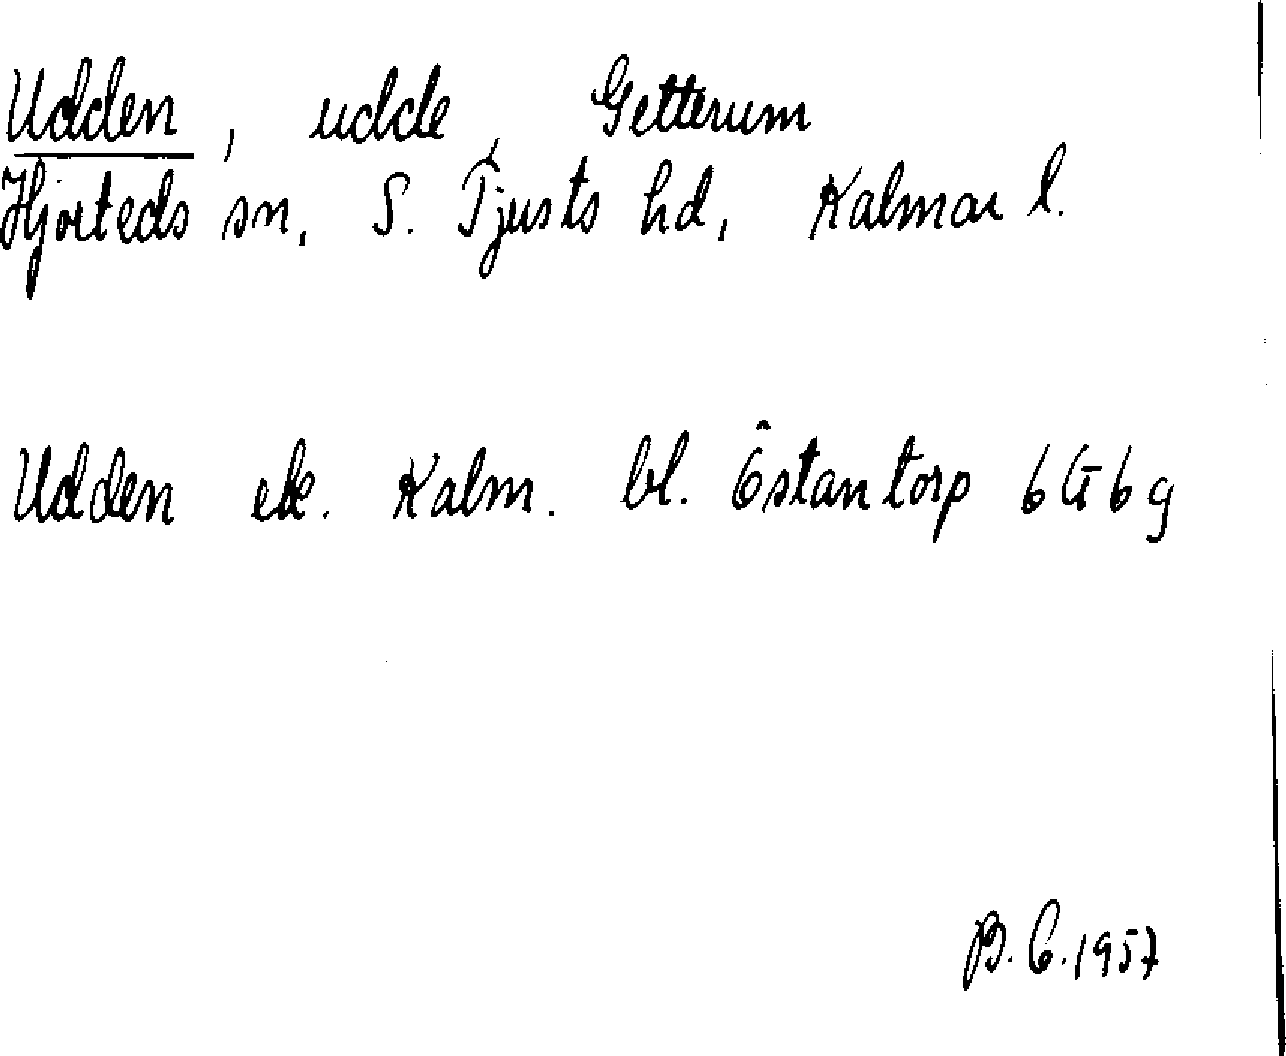 Udden, udde, Getterum
Hjorteds sn, S. Tjusts hd, Kalmar l.
Udden ek. Kalm. bl. Östantorp 6G6g
B.C. 1957